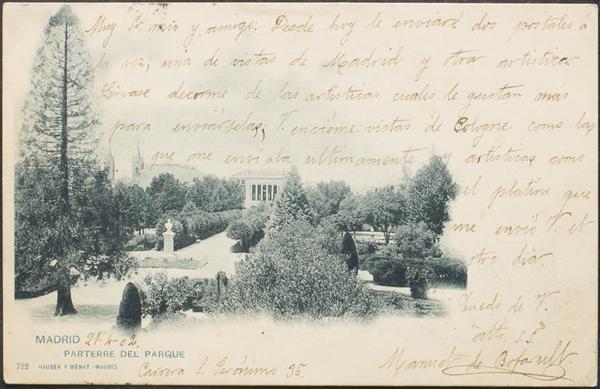 Muy Sr. mio y amigo: Desde hoy le enviaré dos postales á
la vez, una de vistas de Madrid y otra artistica
Sirvase decirme de las artísticas cuales le gustan más
para enviárselas; V. envieme: vistas de Cologne como las
que me enviaba ultimamente y artísticas como
el platino que
me envió V. el
otro dia.
Quedo de V.
atto. s.s.
Manuel de
MADRID 21-4-02
PARTERRE DEL PARQUE
722 HAUSER Y MENET.-MADRID
Carrera S. Gerónimo 35.